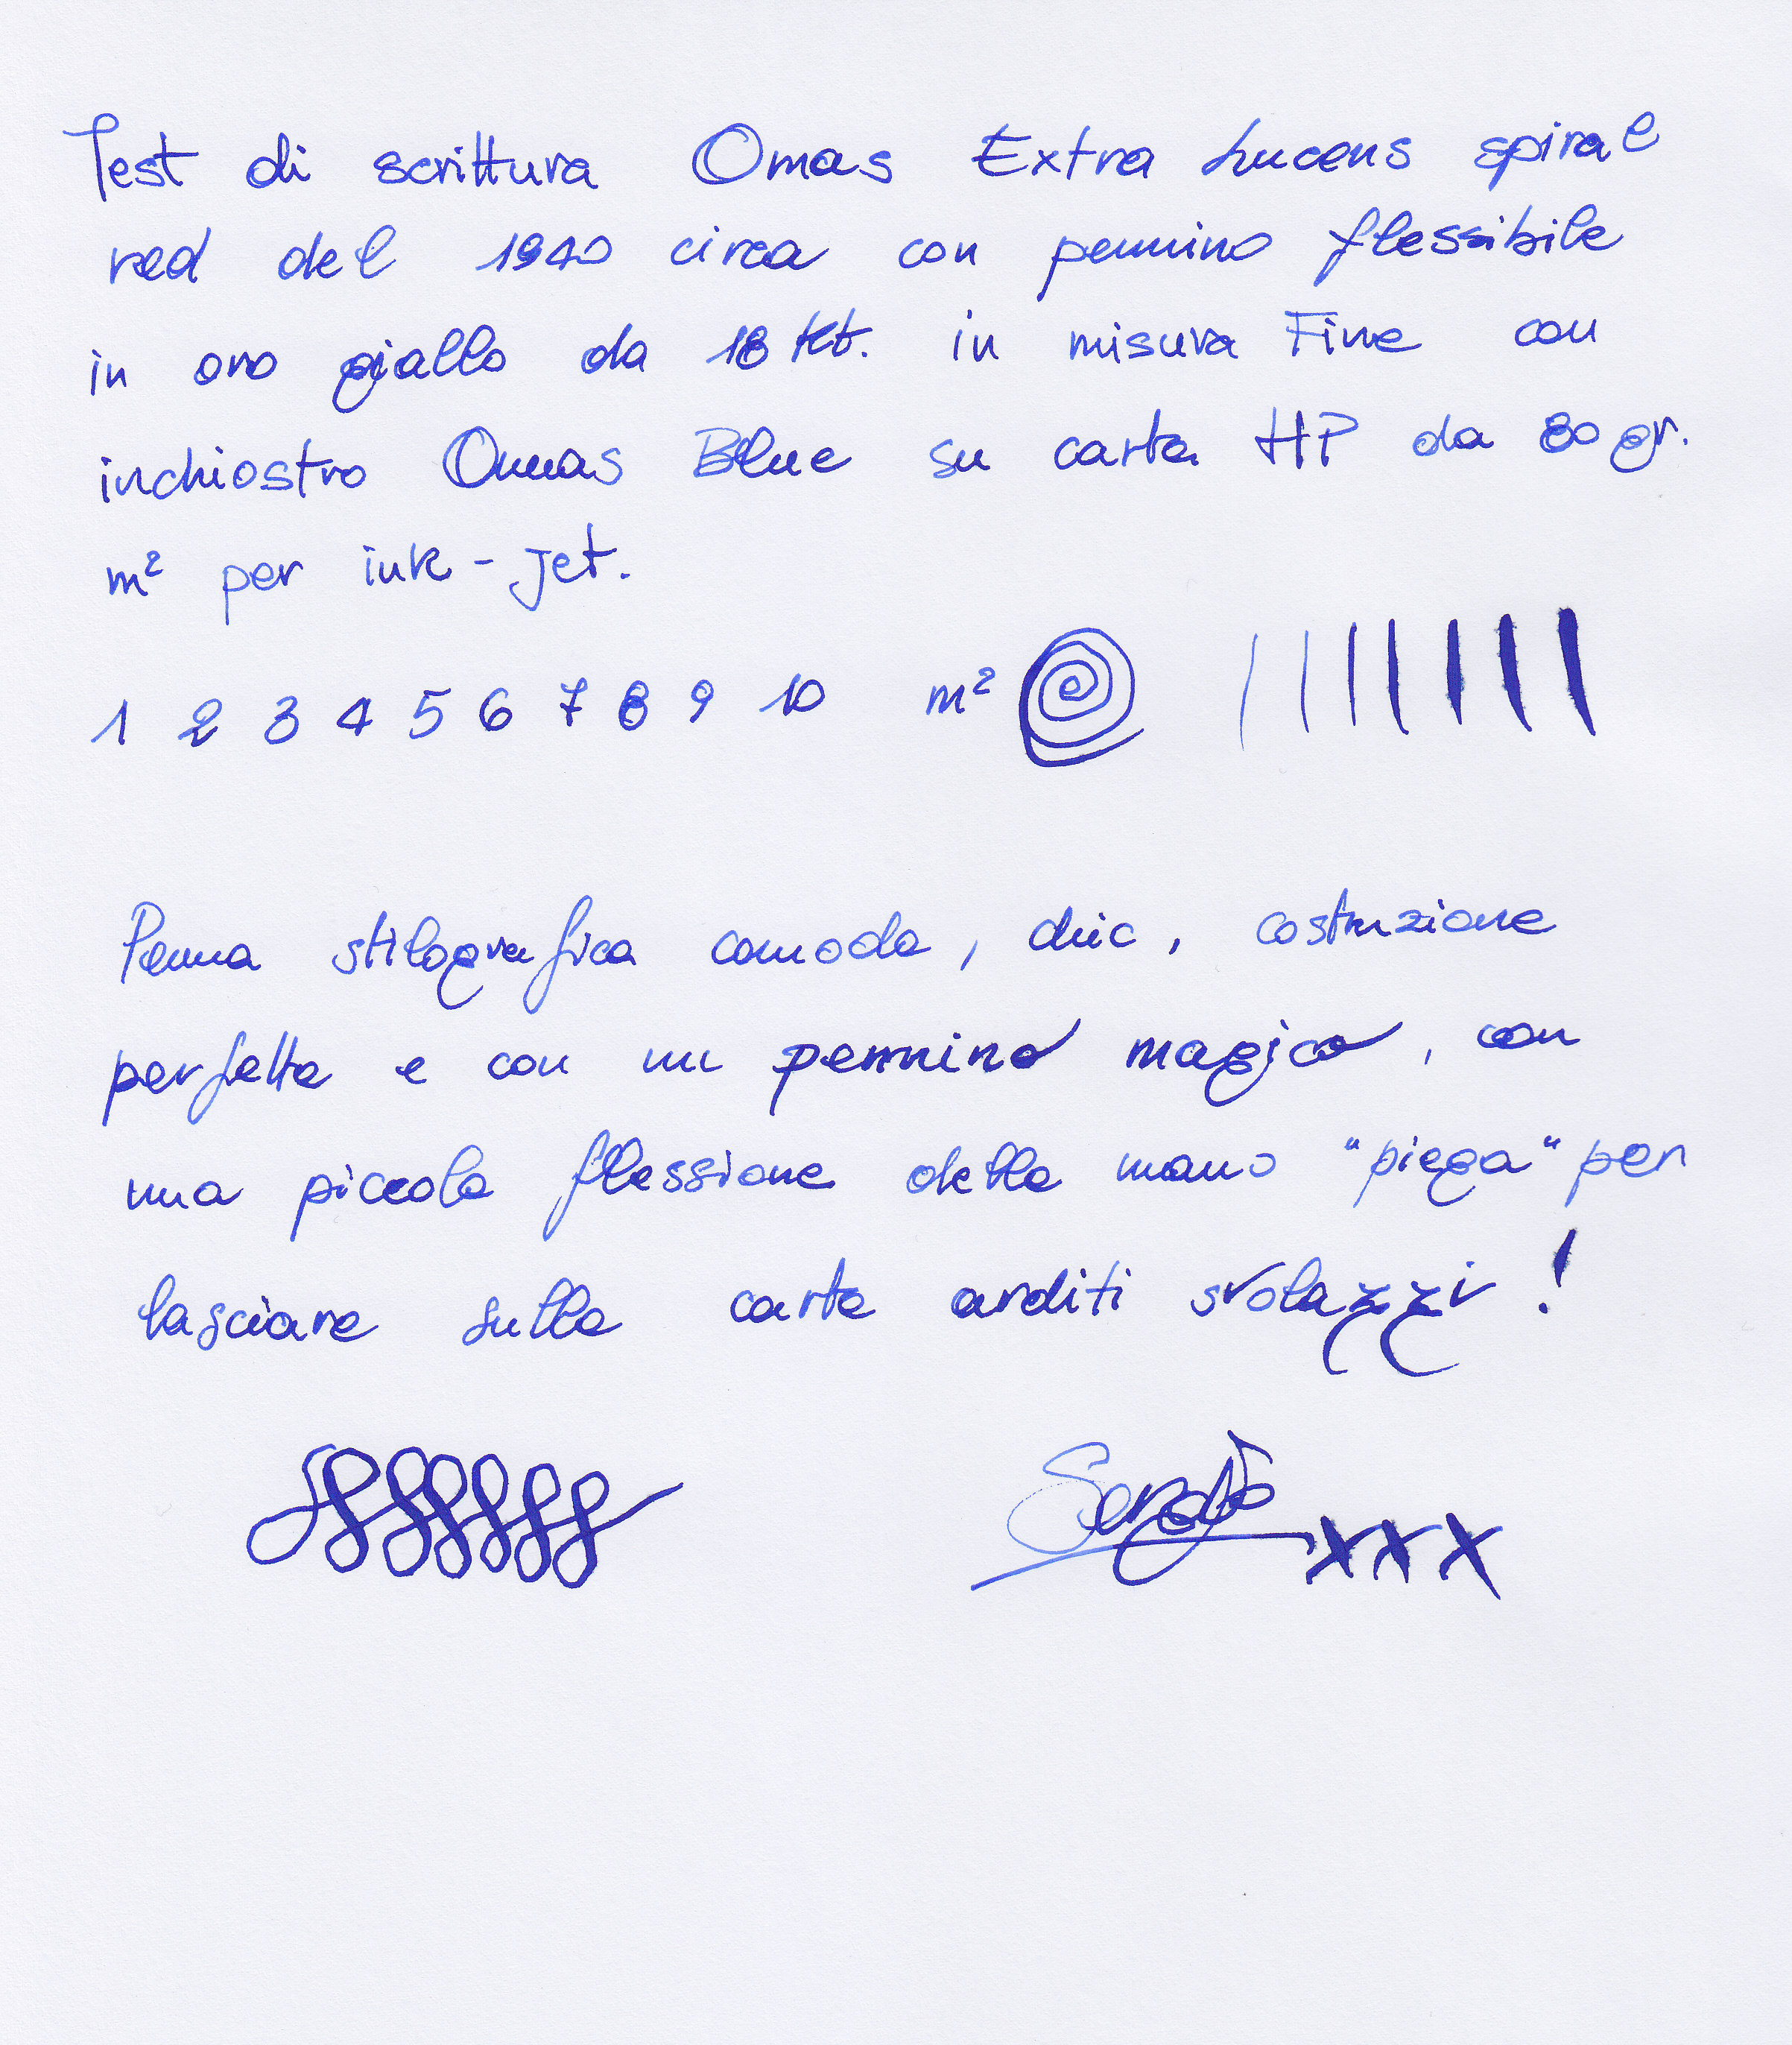 Test di scrittura Omas Extra Lucens spiral
red del 1940 circa con pennino flessibile
in oro giallo da 18 Kt. in misura Fine con
inchiostro Omas Blue su carta HP da 80 gr.
m² per ink-jet.
1 2 3 4 5 6 7 8 9 10 m²
Penna stilografica comoda, chic, costruzione
perfetta e con un pennino magico, con
una piccola flessione della mano "piega" per
lasciare sulla carta arditi svolazzi!
xxx